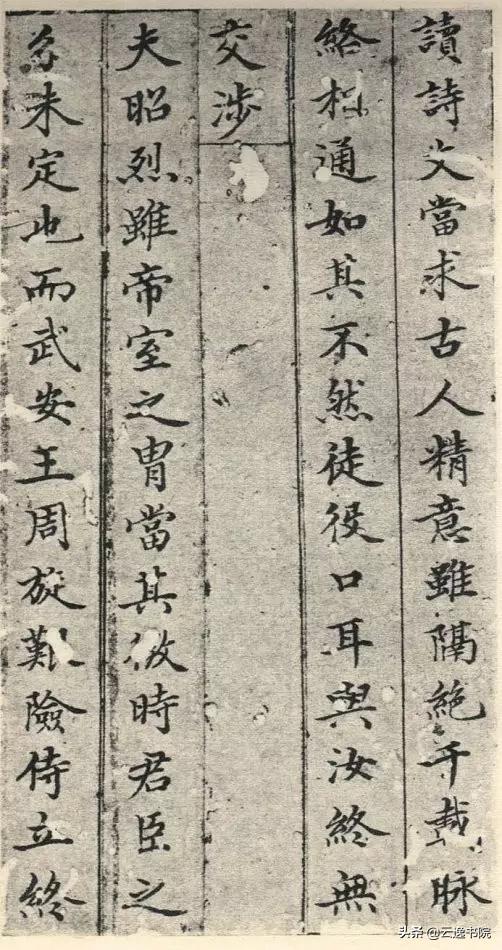 讀詩文當求古人精意雖隔絶千載脉
絡相通如其不然徒役口耳與汝終無
交涉
夫昭烈雖帝室之胄當其微時君臣之
名未定也而武安王周旋艱險侍立終
头条@云逸书院